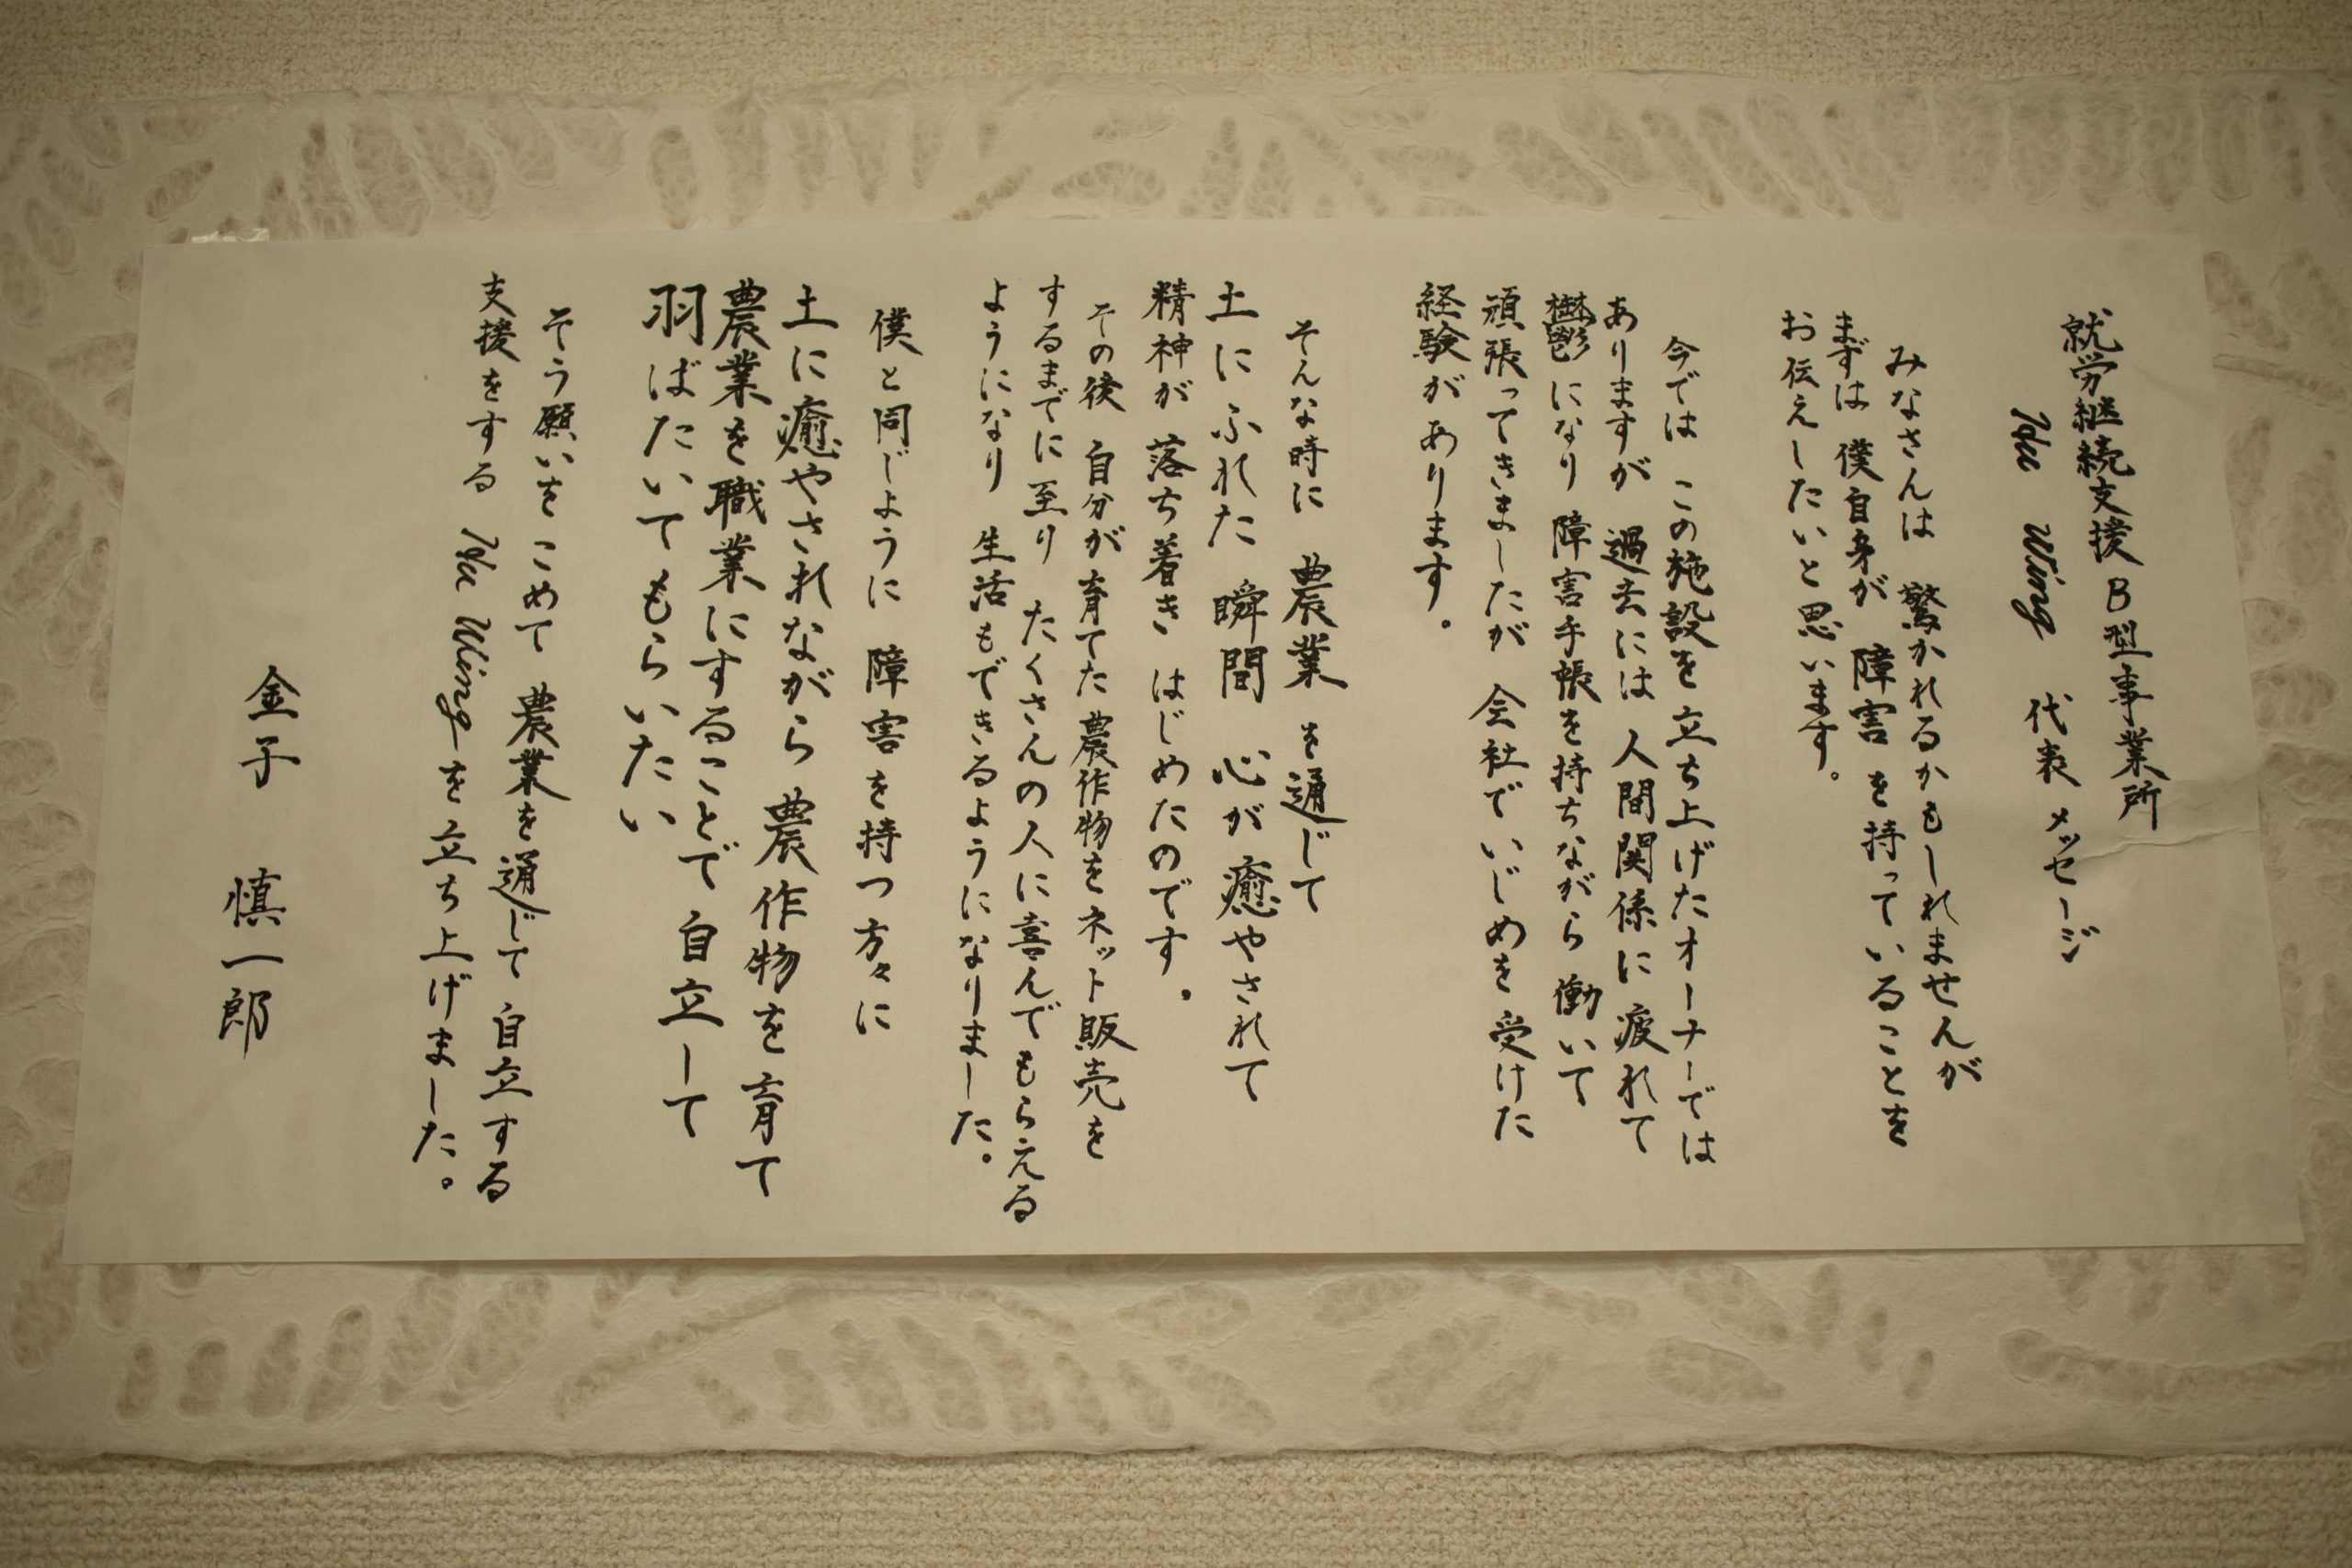 就労継続支援B型事業所
Wing 代表メッセージ
みなさんは 驚かれるかもしれませんが
まずは 僕自身が 障害を持っていることを
お伝えしたいと思います。
今では この施設を立ち上げたオーナーでは
ありますが 過去には人間関係に疲れて
鬱になり 障害手帳を持ちながら働いて
頑張ってきましたが 会社でいじめを受けた
経験があります。
そんな時に 農業を通じて
土にふれた 瞬間 心が癒やされて
精神が落ち着き はじめたのです。
その後 自分が育てた農作物をネット販売を
するまでに至り たくさんの人に喜んでもらえる
ようになり 生活もできるようになりました。
僕と同じように 障害を持つ方々に
土に癒やされながら 農作物を育て
農業を職業にすることで 自立して
羽ばたいてもらいたい
そう願いをこめて 農業を通じて 自立する
支援をする Wingを立ち上げました。
金子 慎一郎